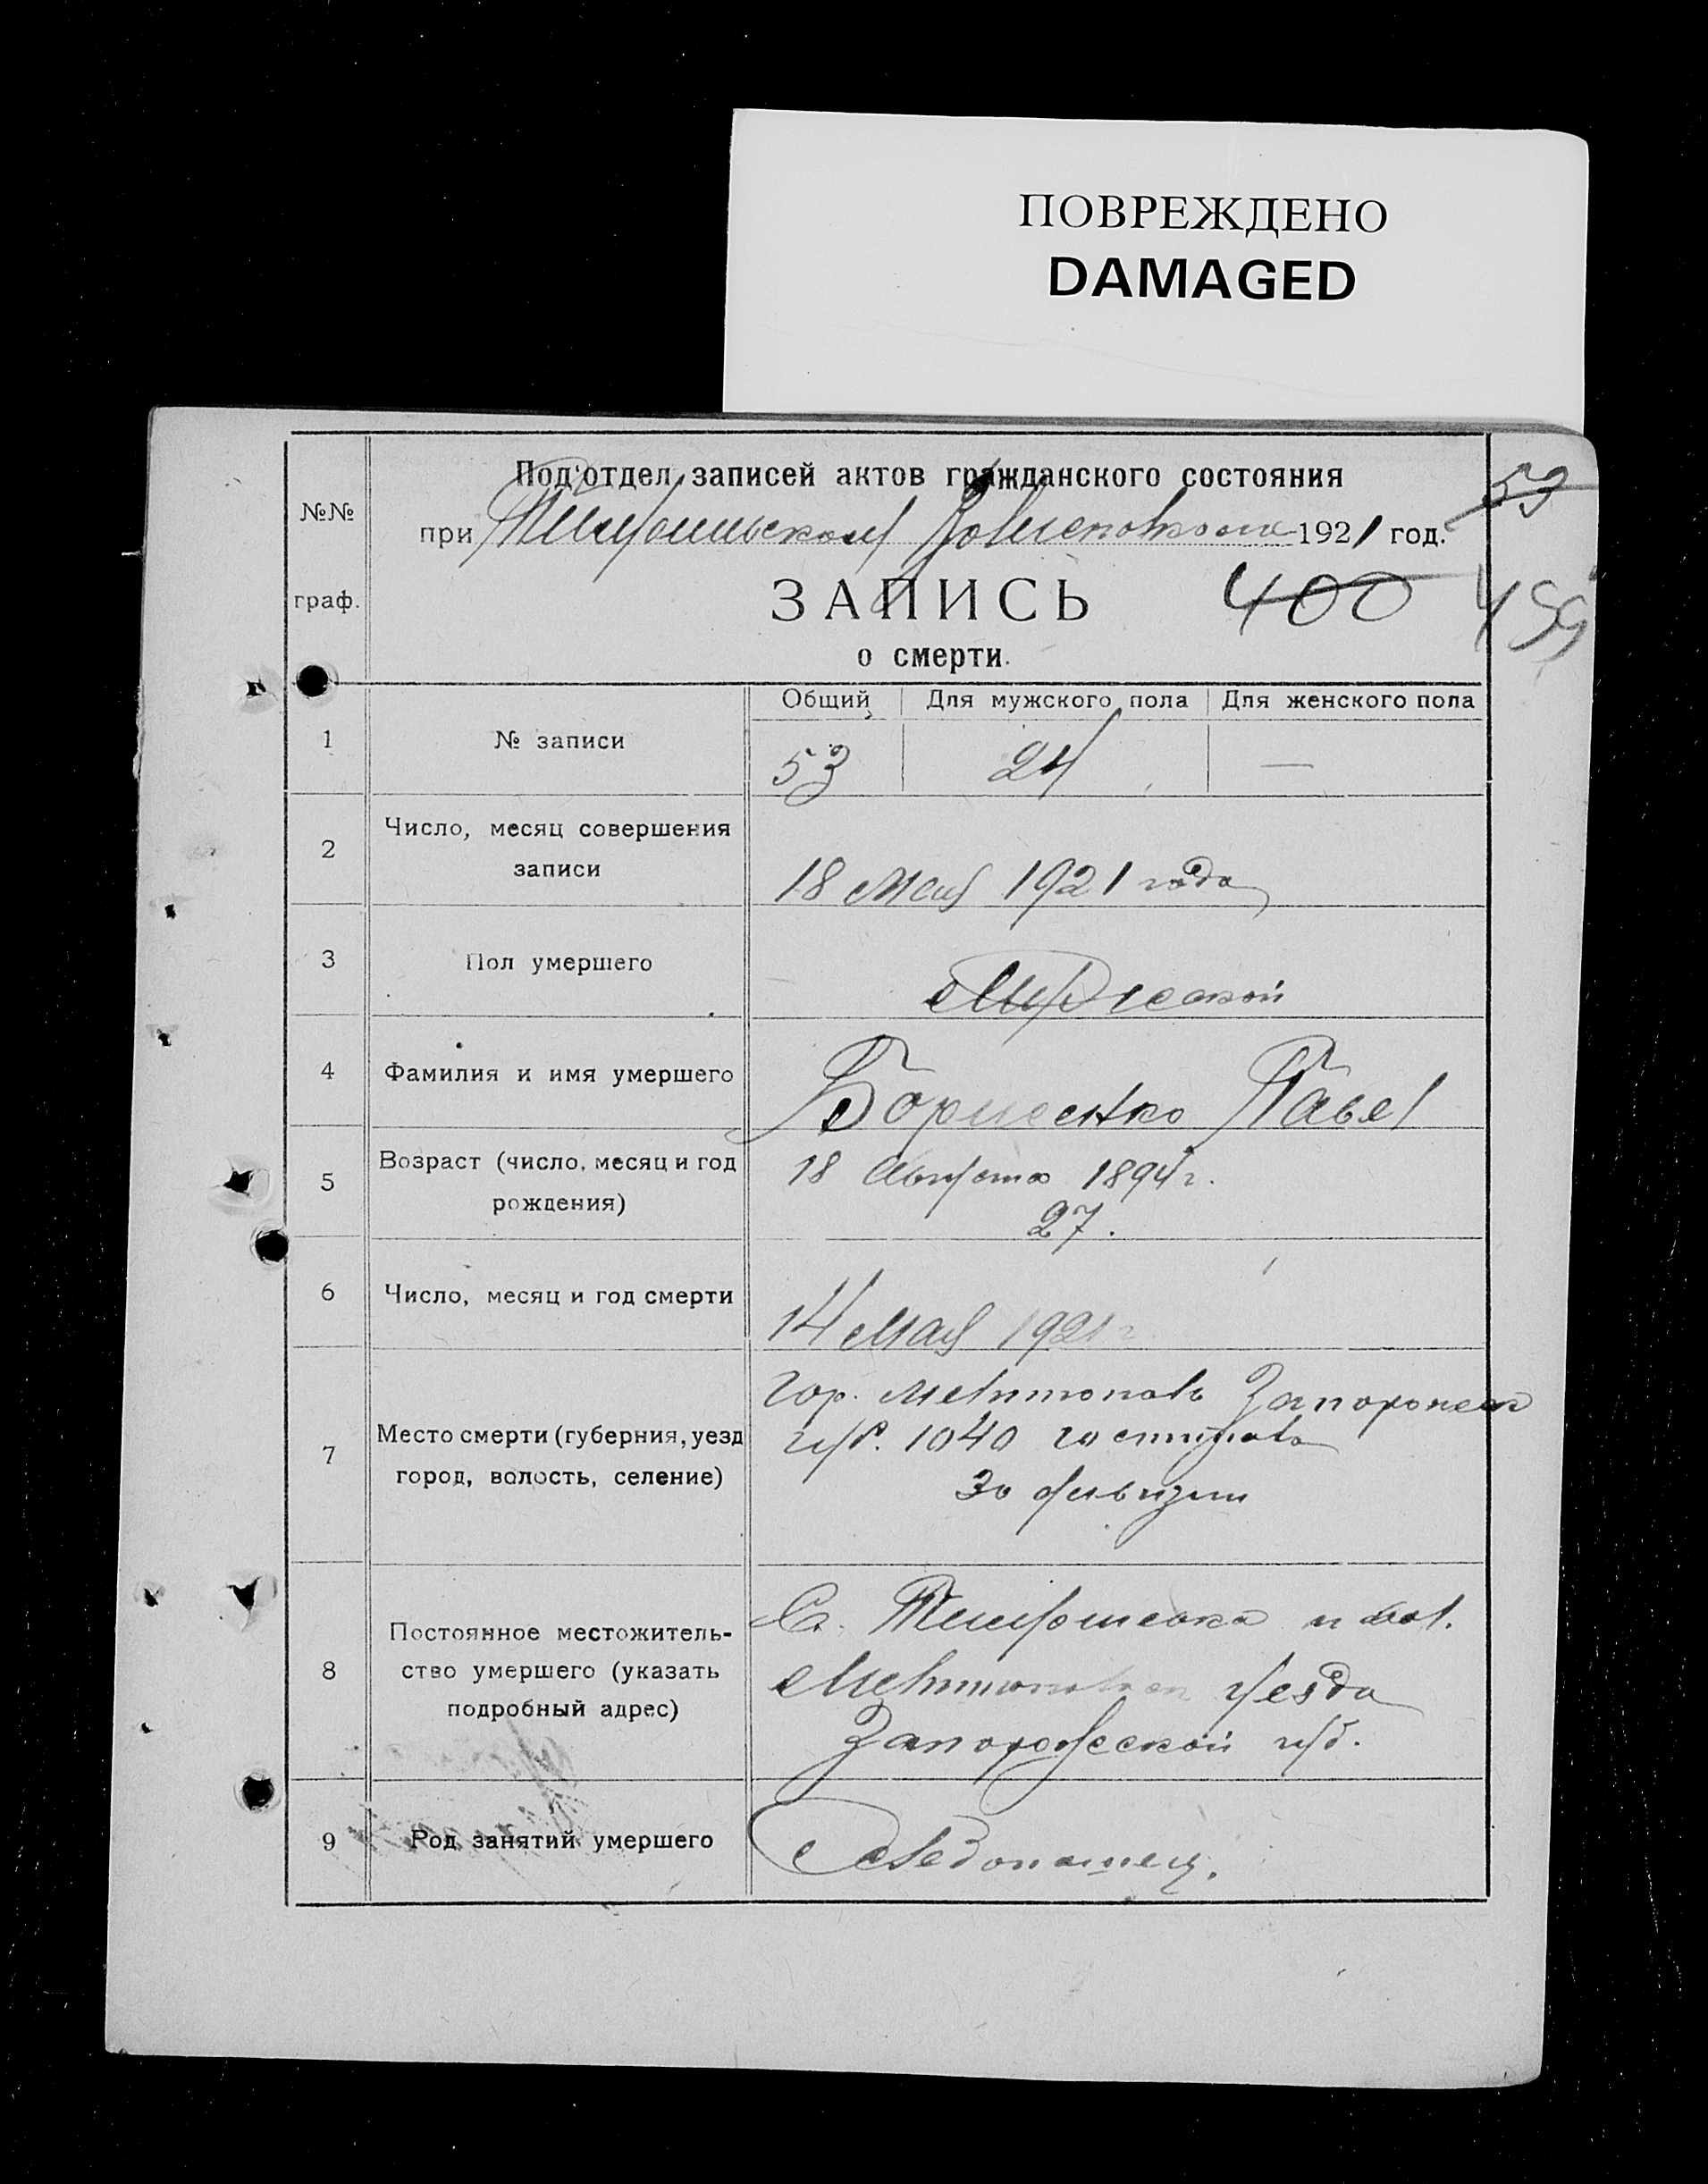 ПОВРЕЖДЕНО
DAMAGED
Под'отдел записей актов гражданского состояния 53
№№
при 1921 год.
ЗАПИСЬ 400 459
граф.
о смерти.
Общий Для мужского пола Для женского пола
1 № записи 53 24 —
2 Число, месяц совершения
записи 18 Мая 1921 года
3 Пол умершего Мужеской
4 Фамилия и имя умершего Борисенко Павел
5 Возраст (число, месяц и год
рождения) 18 Августа 1894 г.
27.
6 Число, месяц и год смерти 14 Мая 1921 г
7 Место смерти (губерния, уезд
город, волость, селение)
гор. Мелитополь
губ. 1040 госпиталь
30 дивизии
8 Постоянное местожитель-
ство умершего (указать
подробный адрес)
С. и вол.
Мелитопольск уезда
Запорожской губ.
9 Род занятий умершего Хлебопашец.